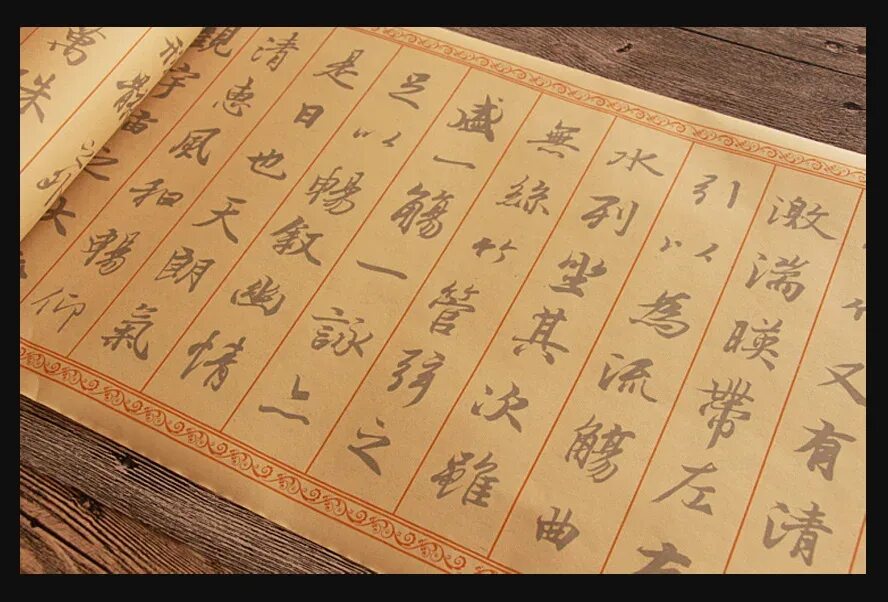 又有清
激湍暎帶左右
引以為流觴曲
水列坐其次雖
無絲竹管弦之
盛一觴一詠亠
足以暢叙幽情
是日也天朗氣
清惠風和暢仰
觀宇宙之大
骸之
萬